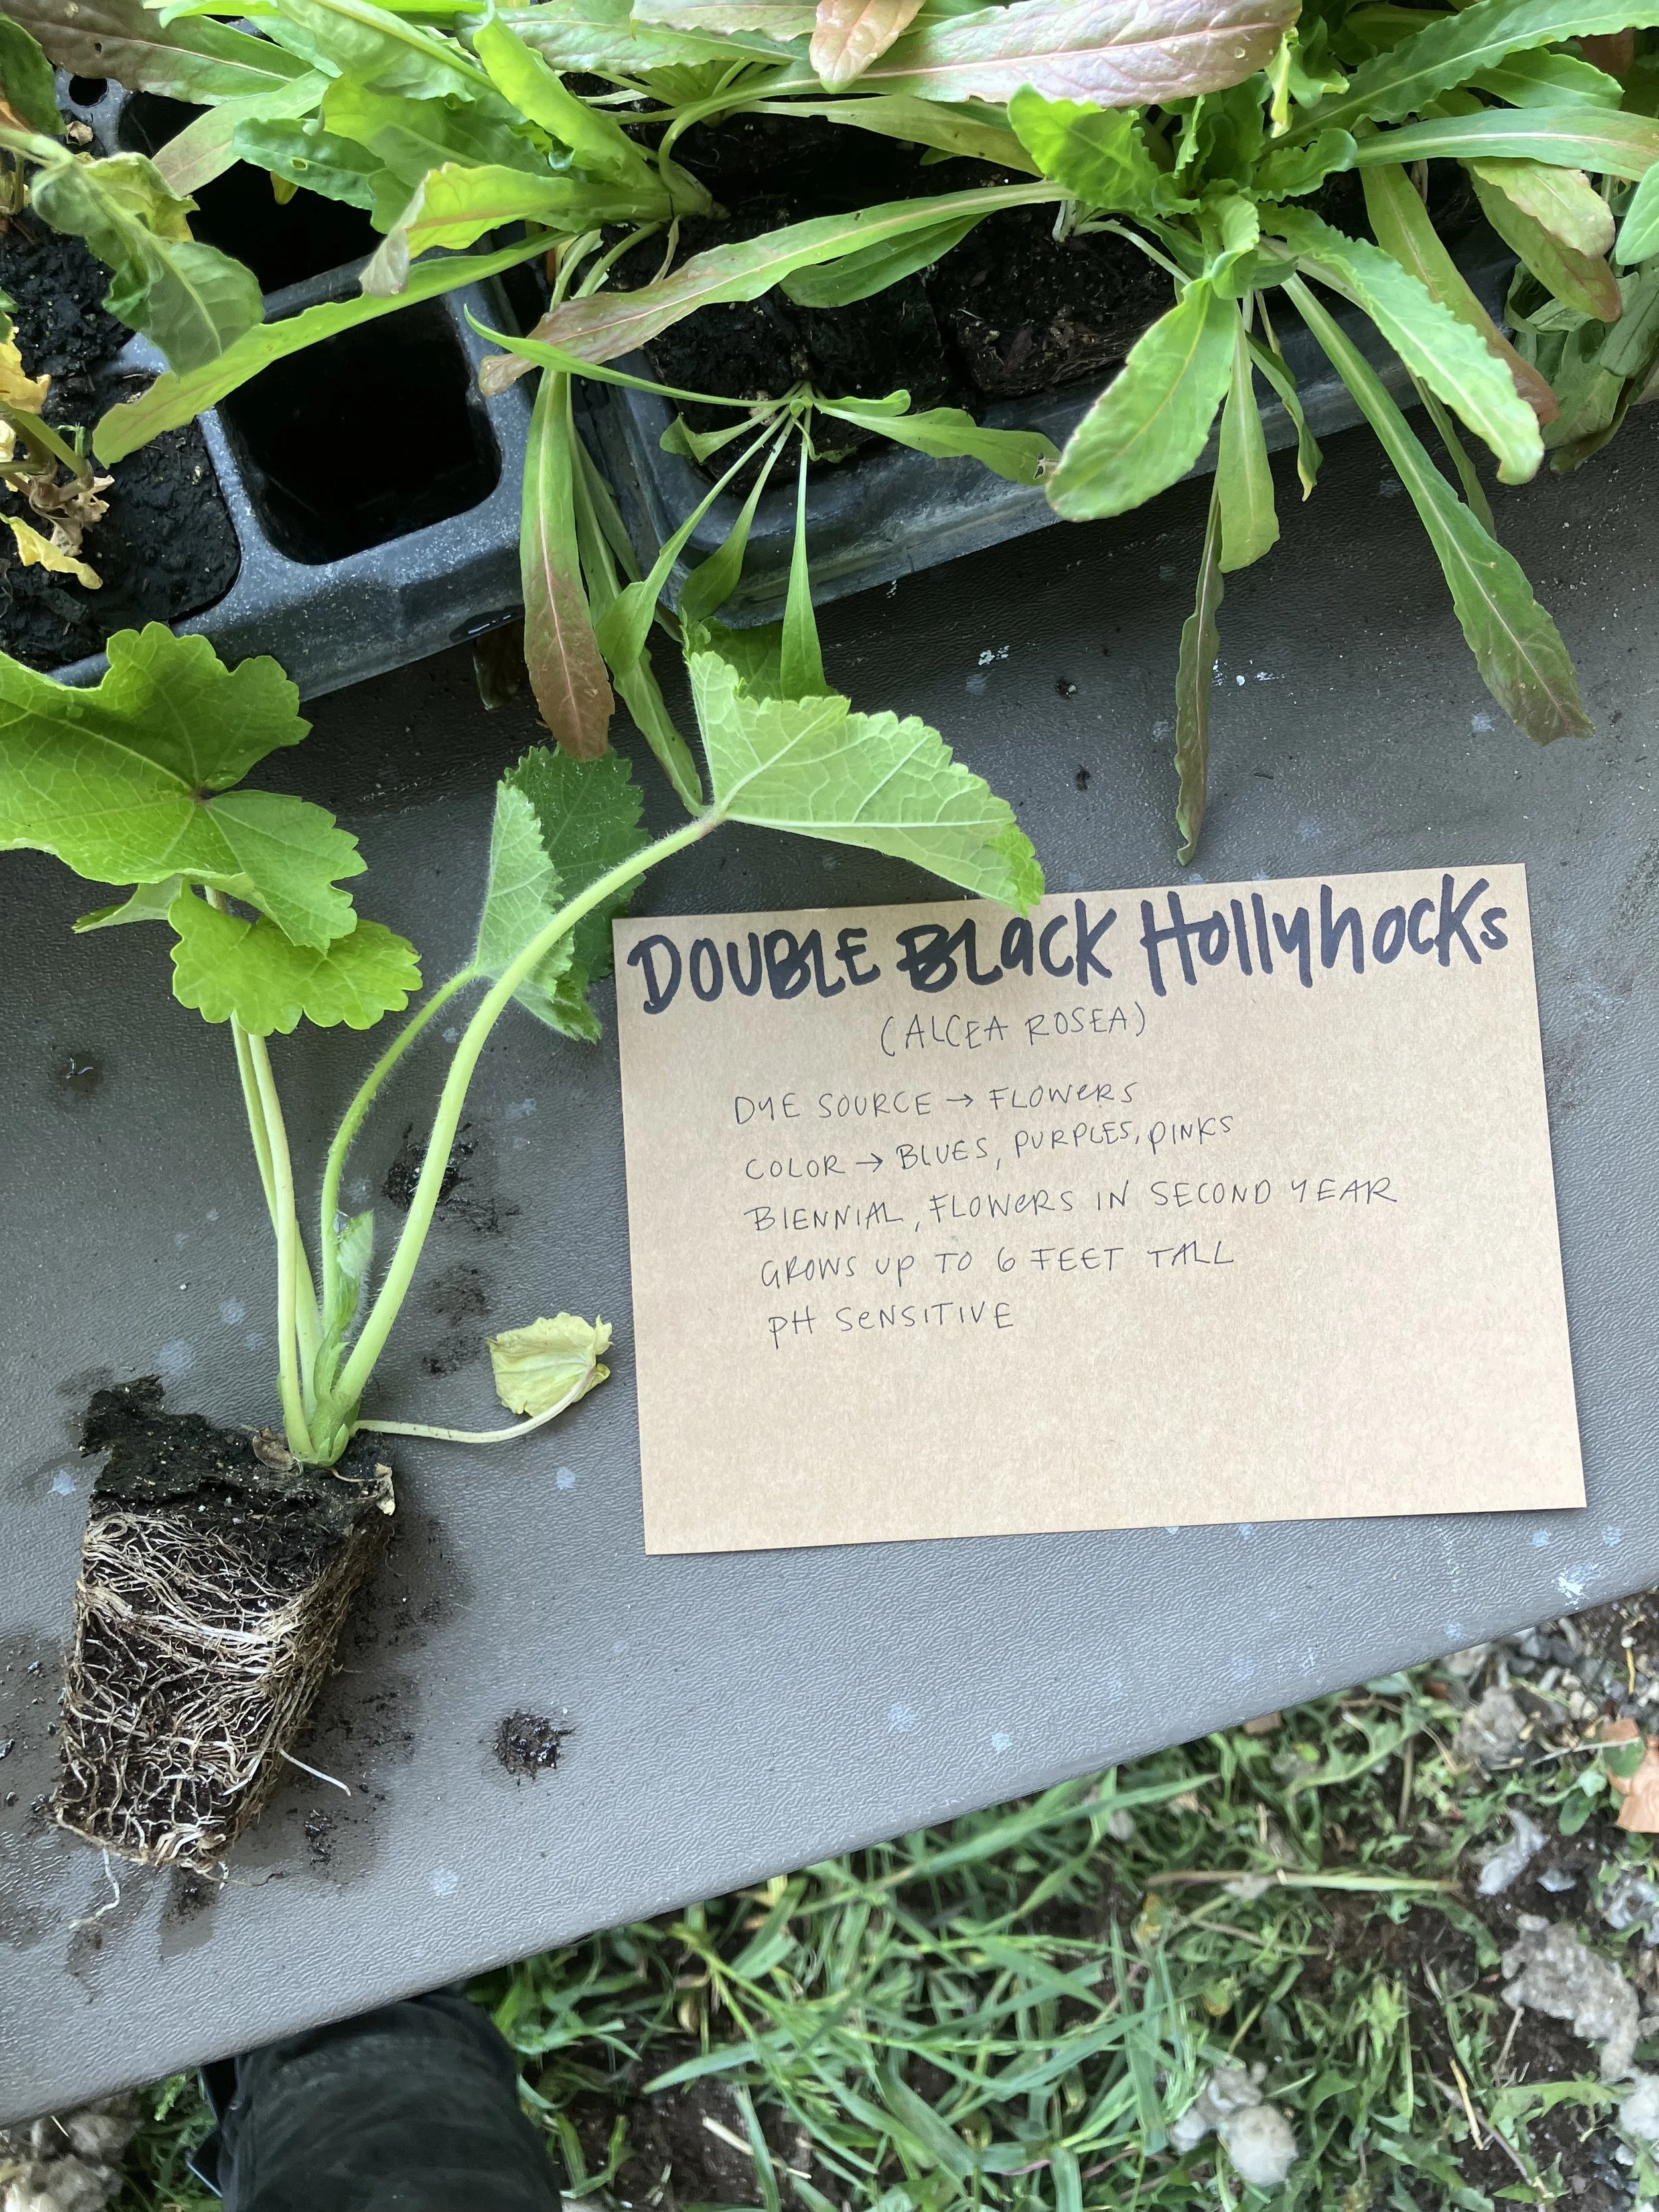 DOUBLE BLacK HollyhocKs
(ALCEA ROSEA)
DYE SOURCE → FLOWeRS
COLOR → BLUES, PURPLES, PINKS
BIENNIAL, FLOWeRS IN SECOND YEAR
GROWS UP TO 6 FEET TALL
PH SeNSITIVE